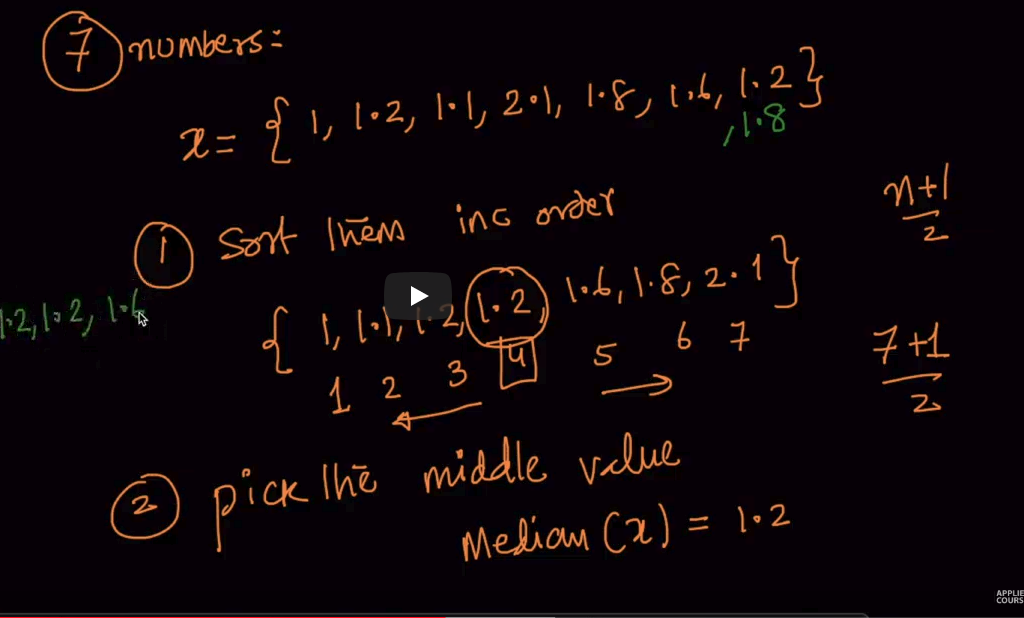 7 numbers:
x = { 1, 1.2, 1.1, 2.1, 1.8, 1.6, 1.2 }
, 1.8
n+1
2
1 Sort them inc order
{ 1, 1.1, 1.2, 1.2, 1.6, 1.8, 2.1 }
1.2, 1.2, 1.6
1 2 3 4 5 6 7
7+1
2
2 pick the middle value
Median (x) = 1.2
APPLIE
COURS